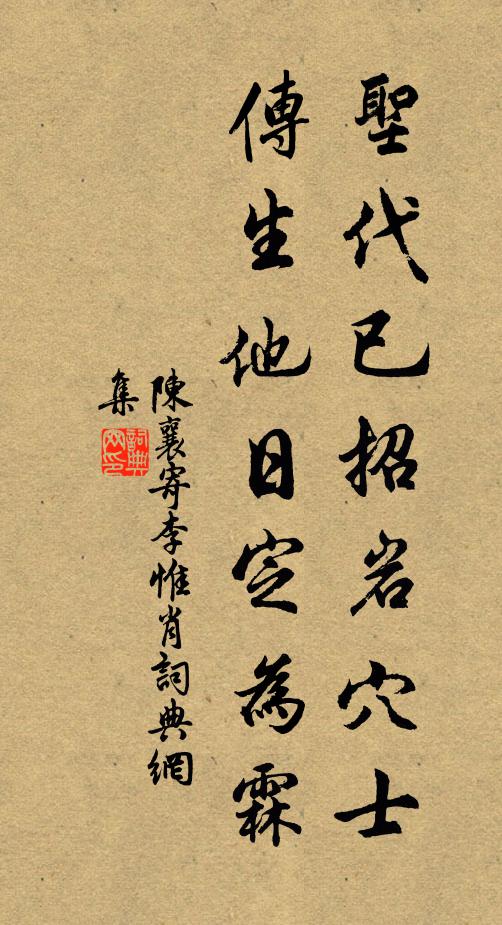 聖代已招岩穴士
傳生他日定為霖
陳襄寄李惟肖詞典網
集
詞典
网印